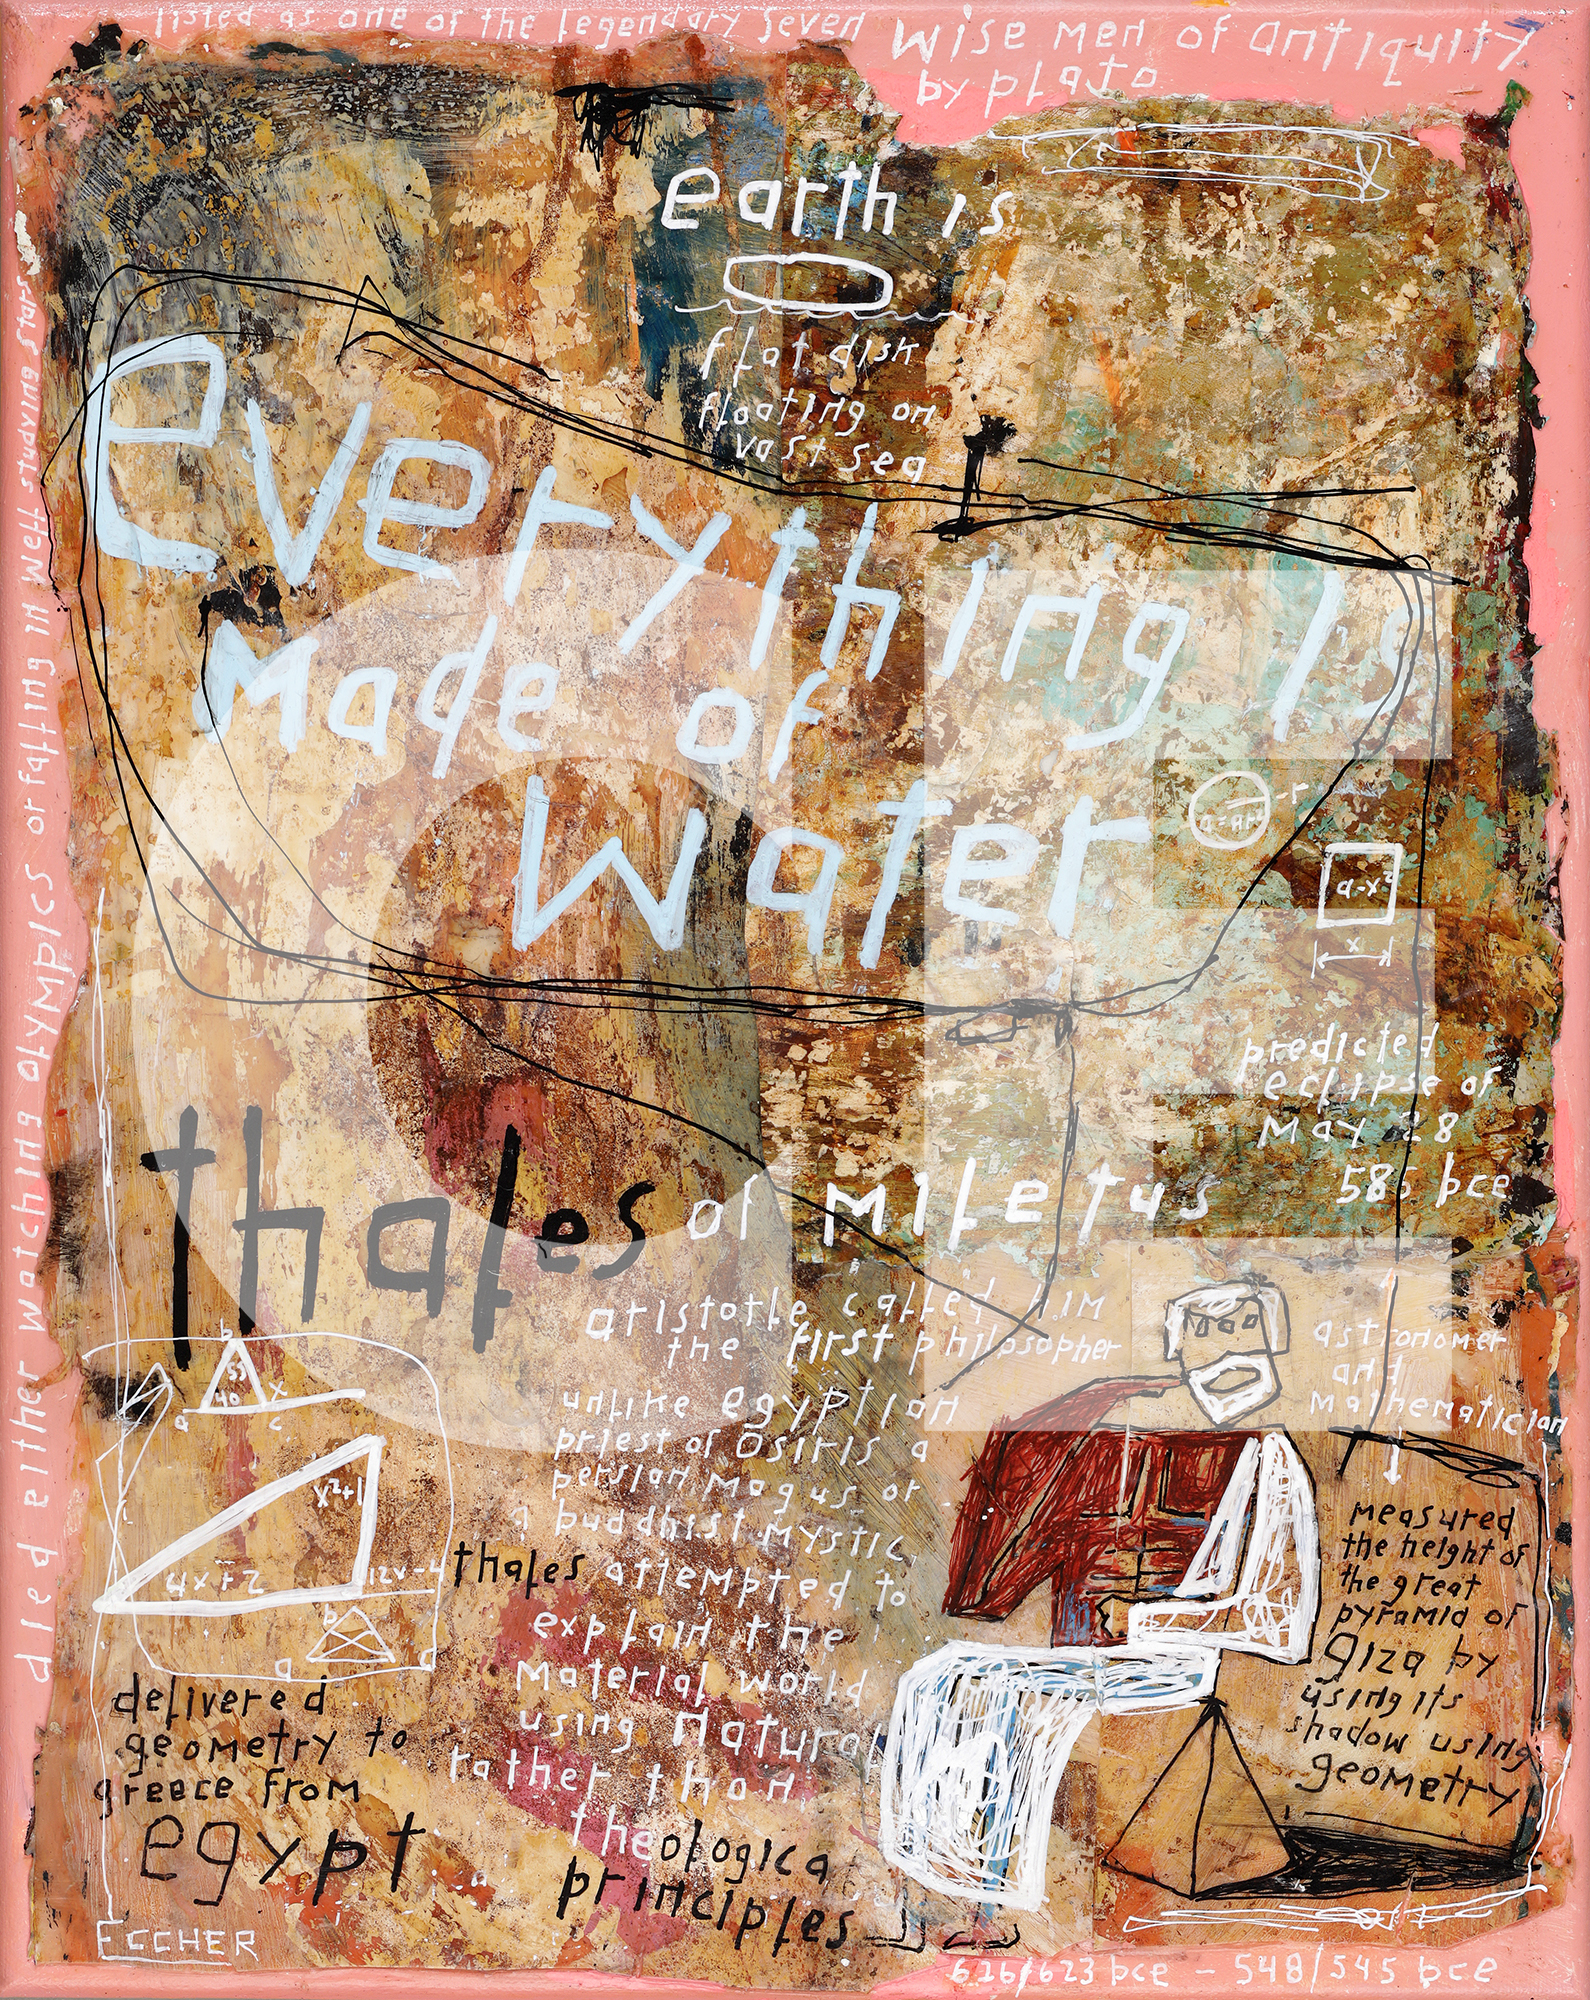 listed as one of the legendary seven wise men of antiquity
by plato
earth is
flat disk
floating on
vast sea
everything is
made of
water
r
a=πr²
a-x²
x
predicted
eclipse of
may 28
585 bce
thales of miletus
aristotle called him
the first philosopher
astronomer
and
mathematician
unlike egyptian
priest of osiris a
persian magus or
a buddhist mystic,
thales attempted to
explain the
material world
using natural
rather than
theologica
principles
b
55
40 x
a c
x²+1
4x+2 12x-4
b
a d
delivered
geometry to
greece from
egypt
measured
the height of
the great
pyramid of
giza by
using its
shadow using
geometry
died either watching olympics or falling in well studying stars
ECCHER
626/623 bce - 548/545 bce
CE